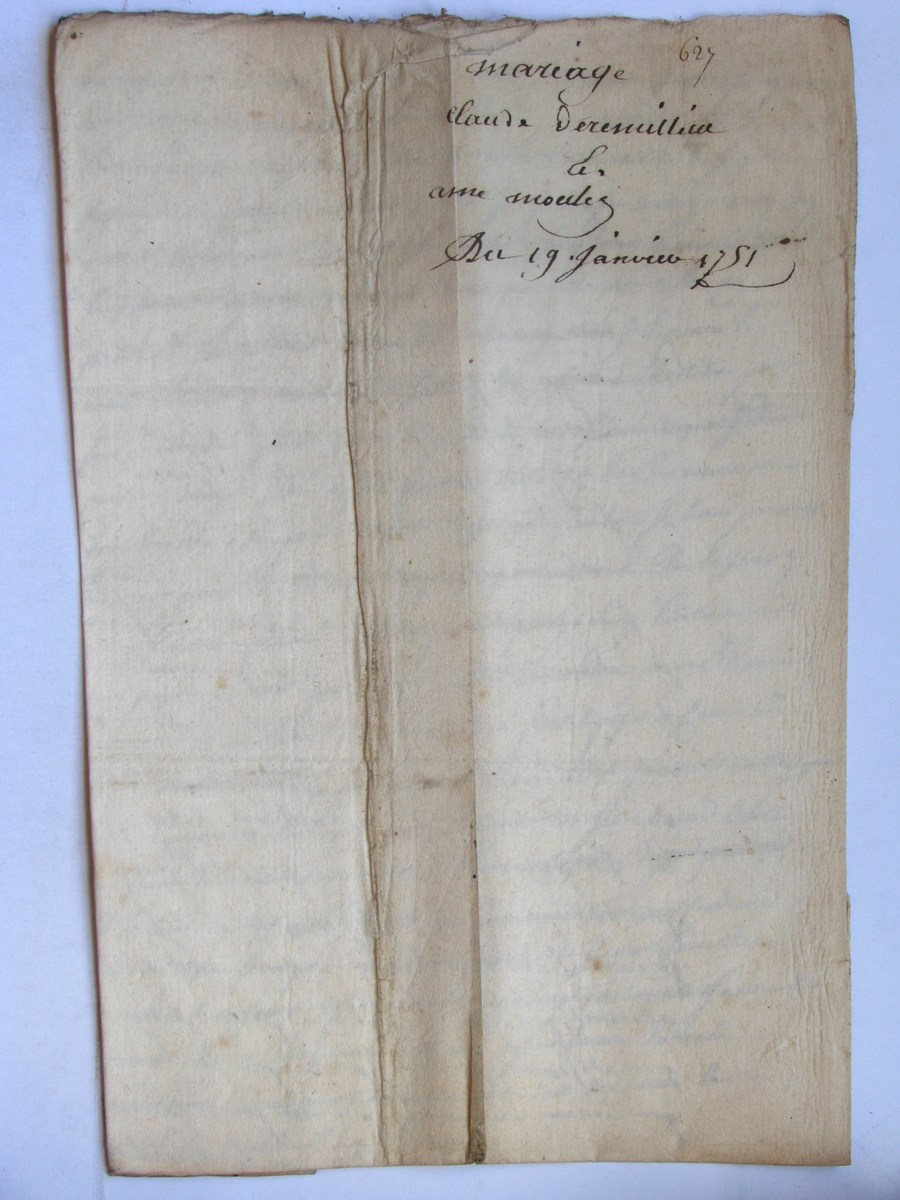 627
mariage
claude deremillieu
Et
anne moulin
Du 19 janvier 1751